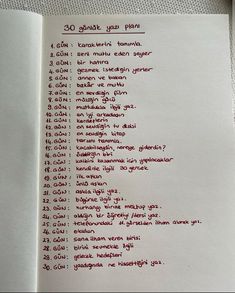 30 günlük yazı planı
1. GÜN: karakterini tanımla.
2. GÜN: seni mutlu eden şeyler
3. GÜN: bir hatıra
4. GÜN: gezmek istediğin yerler
5. GÜN: annen ve baban
6. GÜN: bekâr ve mutlu
7. GÜN: en sevdiğin film
8. GÜN: müziğin gücü
9. GÜN: mutlulukla ilgili yaz.
10. GÜN: en iyi arkadaşın
11. GÜN: kardeşlerin
12. GÜN: en sevdiğin tv dizisi
13. GÜN: en sevdiğin kitap
14. GÜN: tarzını tanımla.
15. GÜN: kaçabilseydin, nereye giderdin?
16. GÜN: özlediğin biri
17. GÜN: kalbini kazanmak için yapılacaklar
18. GÜN: kendinle ilgili 30 gerçek
19. GÜN: ilk aşkın
20. GÜN: ünlü aşkın
21. GÜN: aşkla ilgili yaz.
22. GÜN: bugünle ilgili yaz.
23. GÜN: herhangi birine mektup yaz.
24. GÜN: aldığın bir öğretiyi/dersi yaz.
25. GÜN: telefonundaki 11. görselden ilham alarak yaz.
26. GÜN: okuldan
27. GÜN: sana ilham veren birisi
28. GÜN: birini sevmekle ilgili
29. GÜN: gelecek hedeflerin
30. GÜN: yazdığında ne hissettiğini yaz.